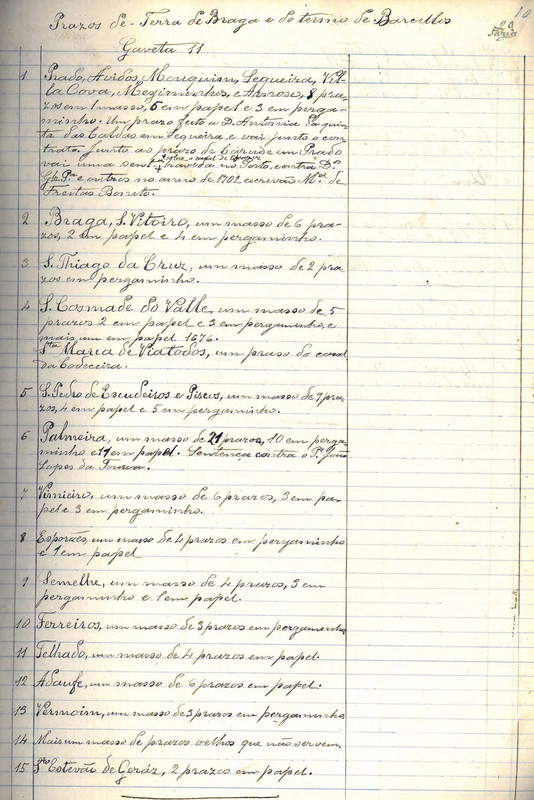 10
Prazos de Terra de Braga e do termo de Barcellos
Gaveta 11
1 Prado, Avidos, Mouquim, Sequeira, Vil-
la Cova, Megiminhos, e Arnoso, 8 pra-
zos em 1 masso, 5 em papel e 3 em perga-
minho. Um prazo feito a D. Antonia da quin-
ta das Caldas em Sequeira, e vai junto o con-
trato. Junto ao prazo de em Prado
vai uma sentença havida no Porto, contra D.ᵒ
Glz Pª e outros no anno de 1702, escrivão M.ᵉˡ de
Freitas Bonito.
2 Braga, S. Vitoiro, um masso de 6 pra-
zos, 2 em papel e 4 em pergaminho.
3 S. Thiago da Cruz, um masso de 2 pra
zos em pergaminho.
4 S. Cosmade do Valle, um masso de 5
prazos 2 em papel e 3 em pergaminho, e
mais um em papel 1676.
Stª Maria de Viatodos, um praso do casal
da Codeceira.
5 S. Pedro de Escudeiros e Piscos, um masso de 9 pra-
zos, 4 em papel e 5 em pergaminho.
6 Palmeira, um masso de 21 prazos, 10 em perga-
minho e 11 em papel. Sentença contra o Pª João
Lopes da
7 Vimieiro, um masso de 6 prazos, 3 em pa-
pel e 3 em pergaminho.
8 Esporões, um masso de 4 prazos em pergaminho
e 1 em papel
9 Semelhe, um masso de 4 prazos, 3 em
pergaminho e 1 em papel.
10 Ferreiros, um masso de 3 prazos em pergaminho
11 Telhado, um masso de 4 prazos em papel.
12 Adaufe, um masso de 6 prazos em papel.
13 Vermoim, um masso de 3 prazos em pergaminho
14 Mais um masso de prazos velhos que não servem.
15 Stº Estevão de Geráz, 2 prazos em papel.